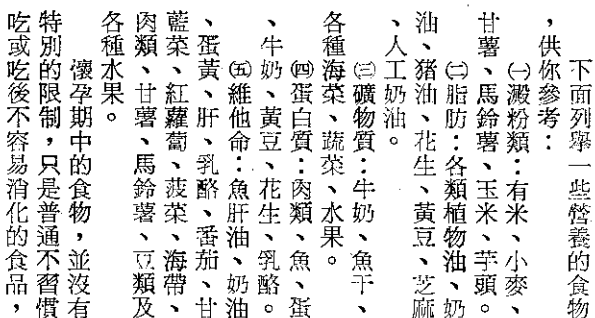 下面列舉一些營養的食物
，供你參考：
㈠澱粉類：有米、小麥、
甘薯、馬鈴薯、玉米、芋頭。
㈡脂肪：各類植物油、奶
油、猪油、花生、黃豆、芝麻
、人工奶油。
㈢礦物質：牛奶、魚干、
各種海菜、蔬菜、水果。
㈣蛋白質：肉類、魚、蛋
、牛奶、黃豆、花生、乳酪。
㈤維他命：魚肝油、奶油
、蛋黃、肝、乳酪、番茄、甘
藍菜、紅蘿蔔、菠菜、海帶、
肉類、甘薯、馬鈴薯、豆類及
各種水果。
懷孕期中的食物，並沒有
特別的限制，只是普通不習慣
吃或吃後不容易消化的食品，